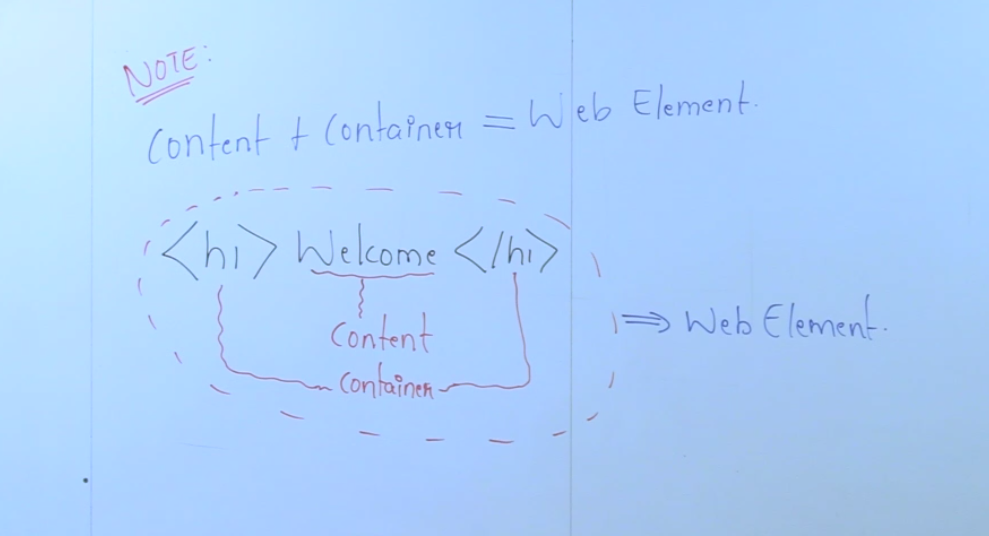 NOTE:
Content + Container = Web Element.
<h1> Welcome </h1>
Content
Container
⇒ Web Element.